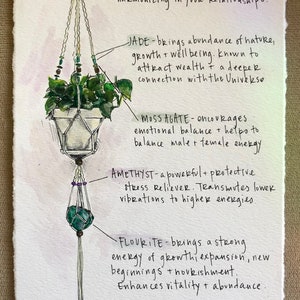 harmonizing in your relationships.
JADE - brings abundance of nature,
growth + well being. Known to
attract wealth + a deeper
connection with the Universe
MOSS AGATE - encourages
emotional balance + helps to
balance male + female energy
AMETHYST - a powerful + protective
stress reliever. Transmutes lower
vibrations to higher energies
FLOURITE - brings a strong
energy of growth, expansion, new
beginnings + nourishment.
Enhances vitality + abundance.